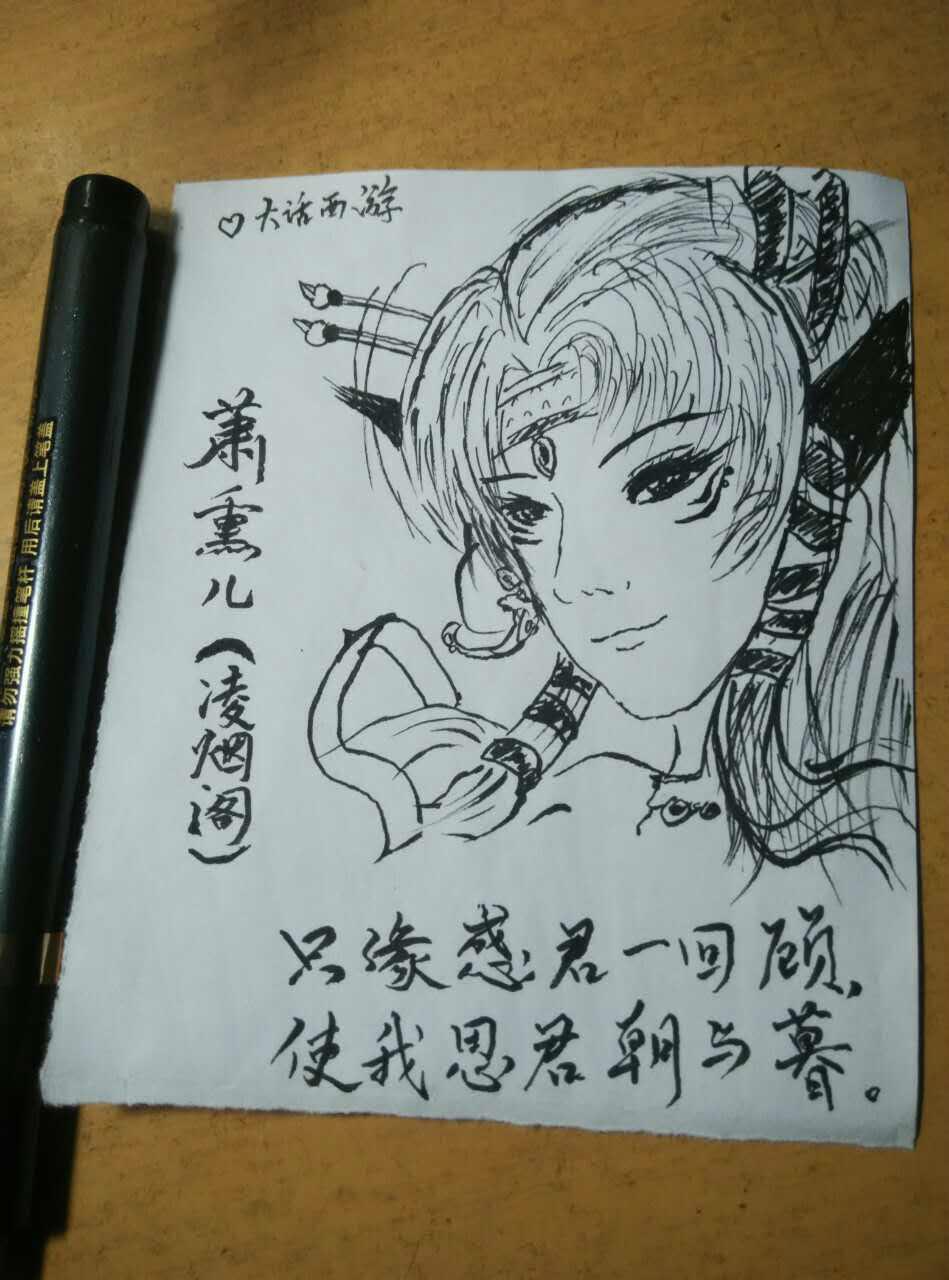 ♡大话西游
萧熏儿(凌烟阁)
只缘感君一回顾,
使我思君朝与暮。
请勿强力摇撞笔杆 用后请盖上笔盖